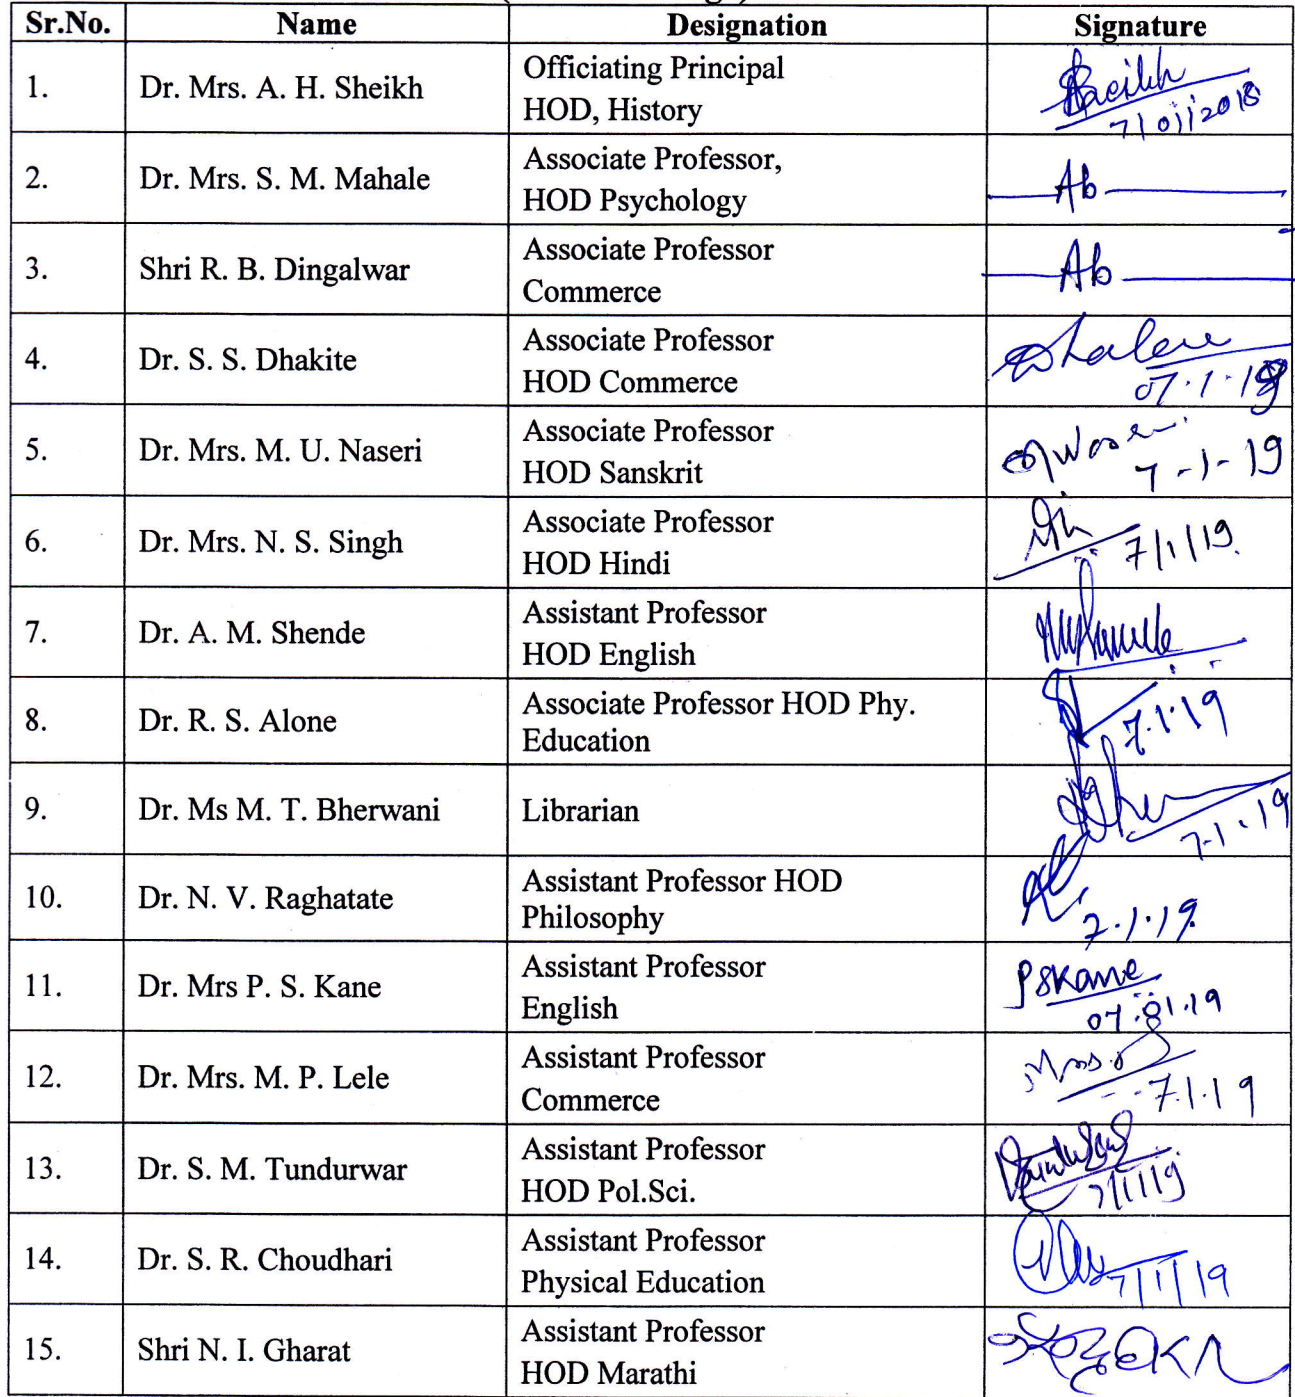 Sr.No. Name Designation Signature
1. Dr. Mrs. A. H. Sheikh Officiating Principal
HOD, History
7/01/2018
2. Dr. Mrs. S. M. Mahale Associate Professor,
HOD Psychology
Ab
3. Shri R. B. Dingalwar Associate Professor
Commerce
Ab
4. Dr. S. S. Dhakite Associate Professor
HOD Commerce
07.1.19
5. Dr. Mrs. M. U. Naseri Associate Professor
HOD Sanskrit
7-1-19
6. Dr. Mrs. N. S. Singh Associate Professor
HOD Hindi
7/1/19
7. Dr. A. M. Shende Assistant Professor
HOD English
8. Dr. R. S. Alone Associate Professor HOD Phy.
Education
7.1.19
9. Dr. Ms M. T. Bherwani Librarian
7.1.19
10. Dr. N. V. Raghatate Assistant Professor HOD
Philosophy
7.1.19
11. Dr. Mrs P. S. Kane Assistant Professor
English
PSKane
07.01.19
12. Dr. Mrs. M. P. Lele Assistant Professor
Commerce
7.1.19
13. Dr. S. M. Tundurwar Assistant Professor
HOD Pol.Sci.
7/1/19
14. Dr. S. R. Choudhari Assistant Professor
Physical Education
7/1/19
15. Shri N. I. Gharat Assistant Professor
HOD Marathi